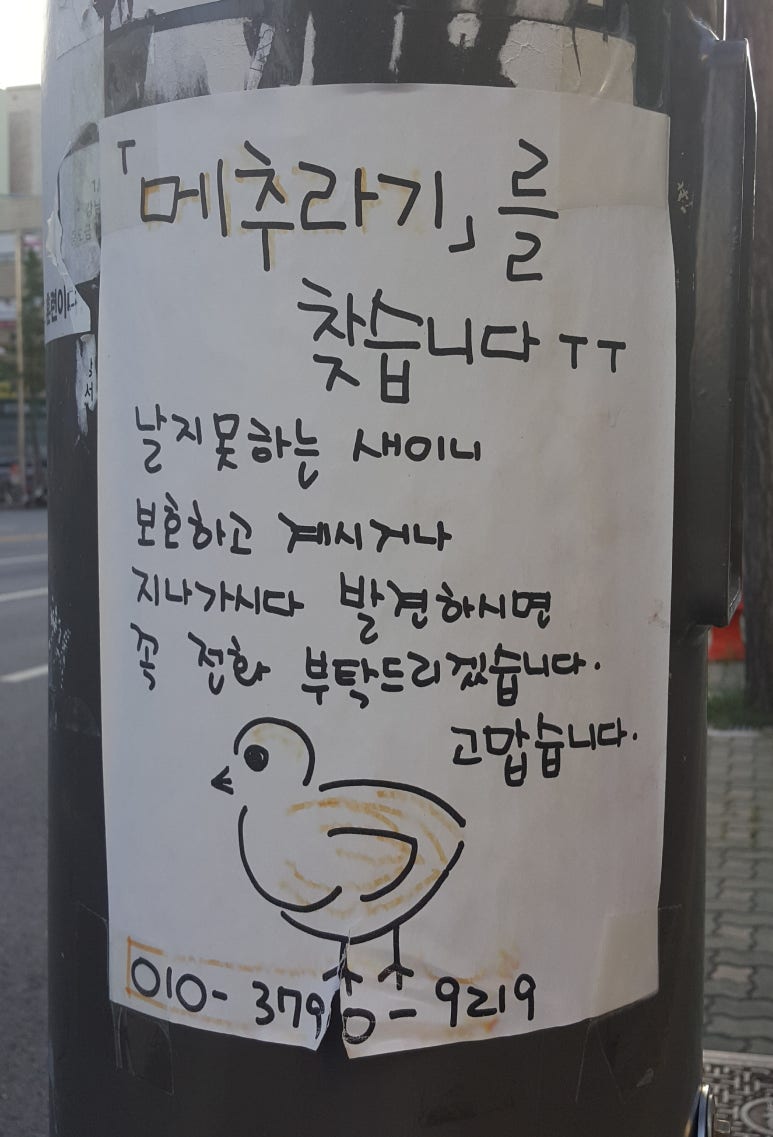 「메추라기」를
찾습니다 ㅜㅜ
날지못하는 새이니
보호하고 계시거나
지나가시다 발견하시면
꼭 전화 부탁드리겠습니다.
고맙습니다.
010- 3790 - 9219